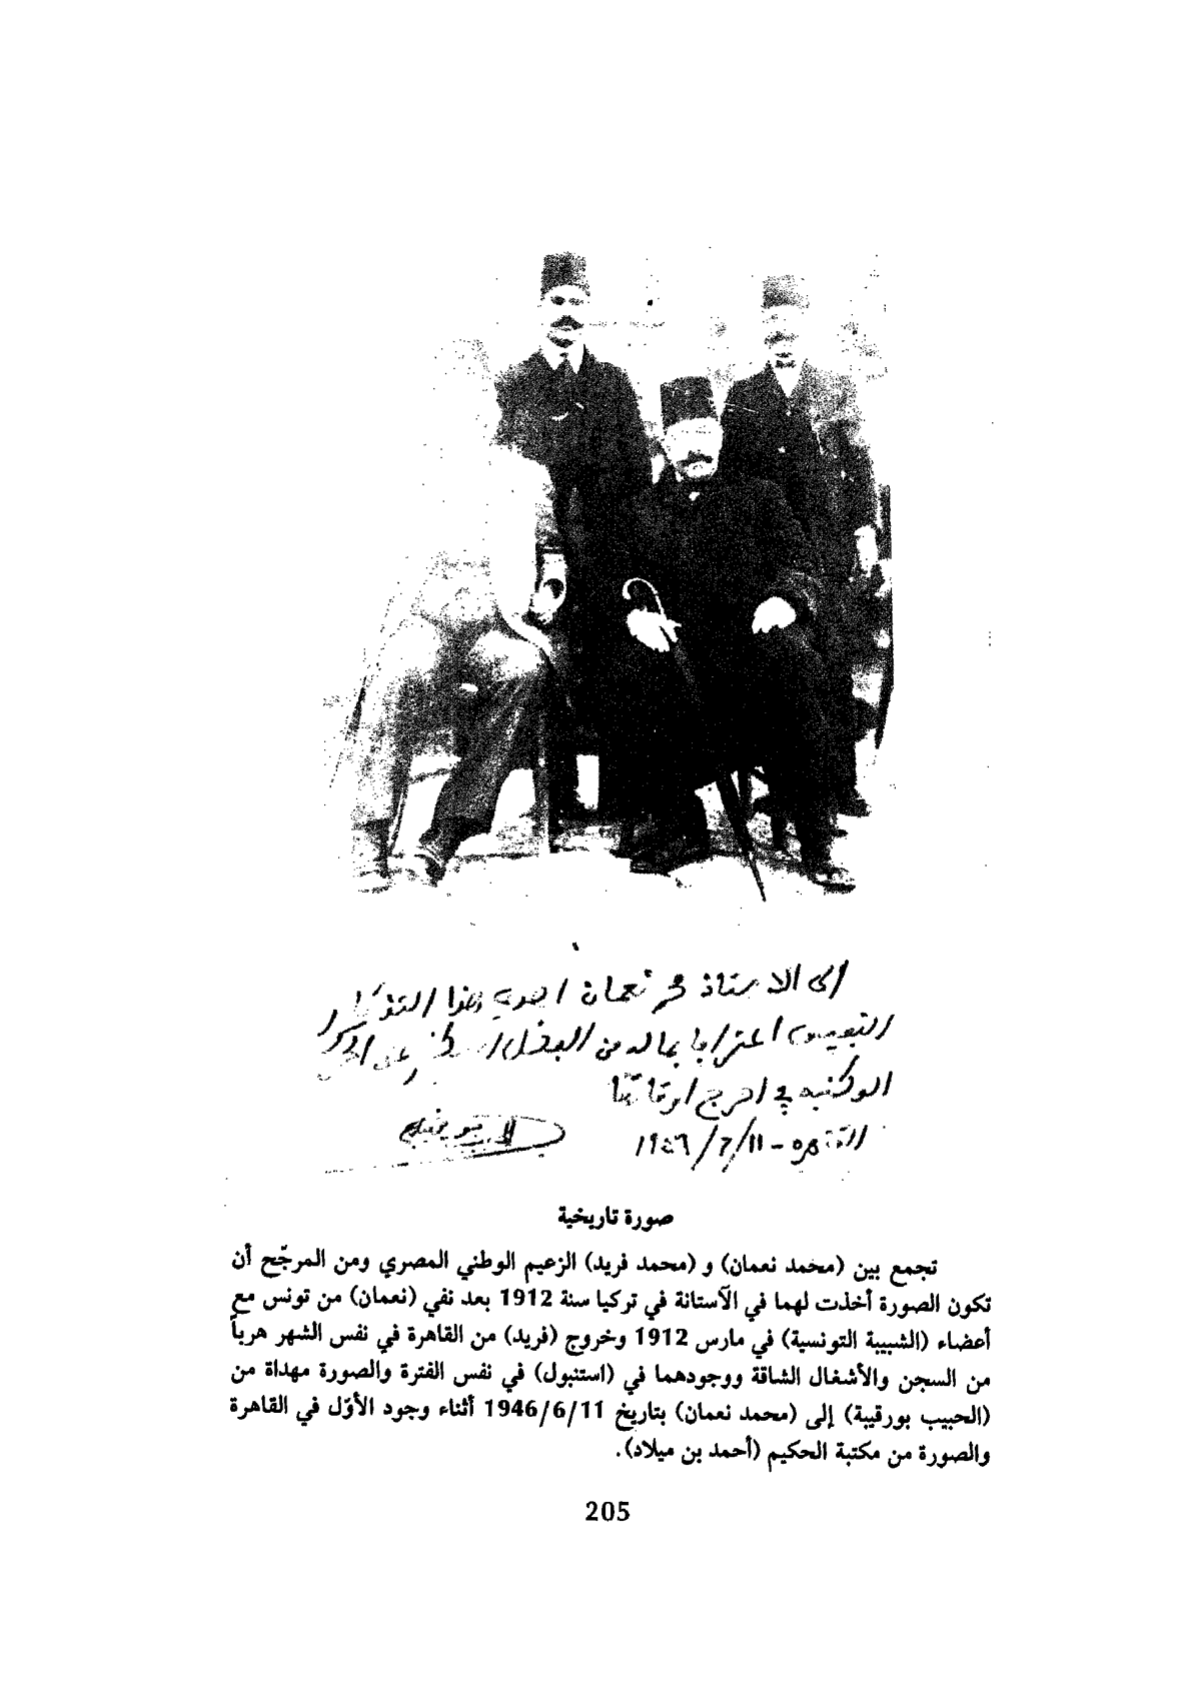 إلى الاستاذ محمد نعمان اهدي هذا التذكار
النفيس اعترافا بماله من الفضل على
الوطنية في احرج اوقاتها
القاهرة - 11/6/1946
صورة تاريخية
تجمع بين (محمد نعمان) و (محمد فريد) الزعيم الوطني المصري ومن المرجّح أن
تكون الصورة أخذت لهما في الآستانة في تركيا سنة 1912 بعد نفي (نعمان) من تونس مع
أعضاء (الشبيبة التونسية) في مارس 1912 وخروج (فريد) من القاهرة في نفس الشهر هرباً
من السجن والأشغال الشاقة ووجودهما في (استنبول) في نفس الفترة والصورة مهداة من
(الحبيب بورقيبة) إلى (محمد نعمان) بتاريخ 1946/6/11 أثناء وجود الأوّل في القاهرة
والصورة من مكتبة الحكيم (أحمد بن ميلاد).
205